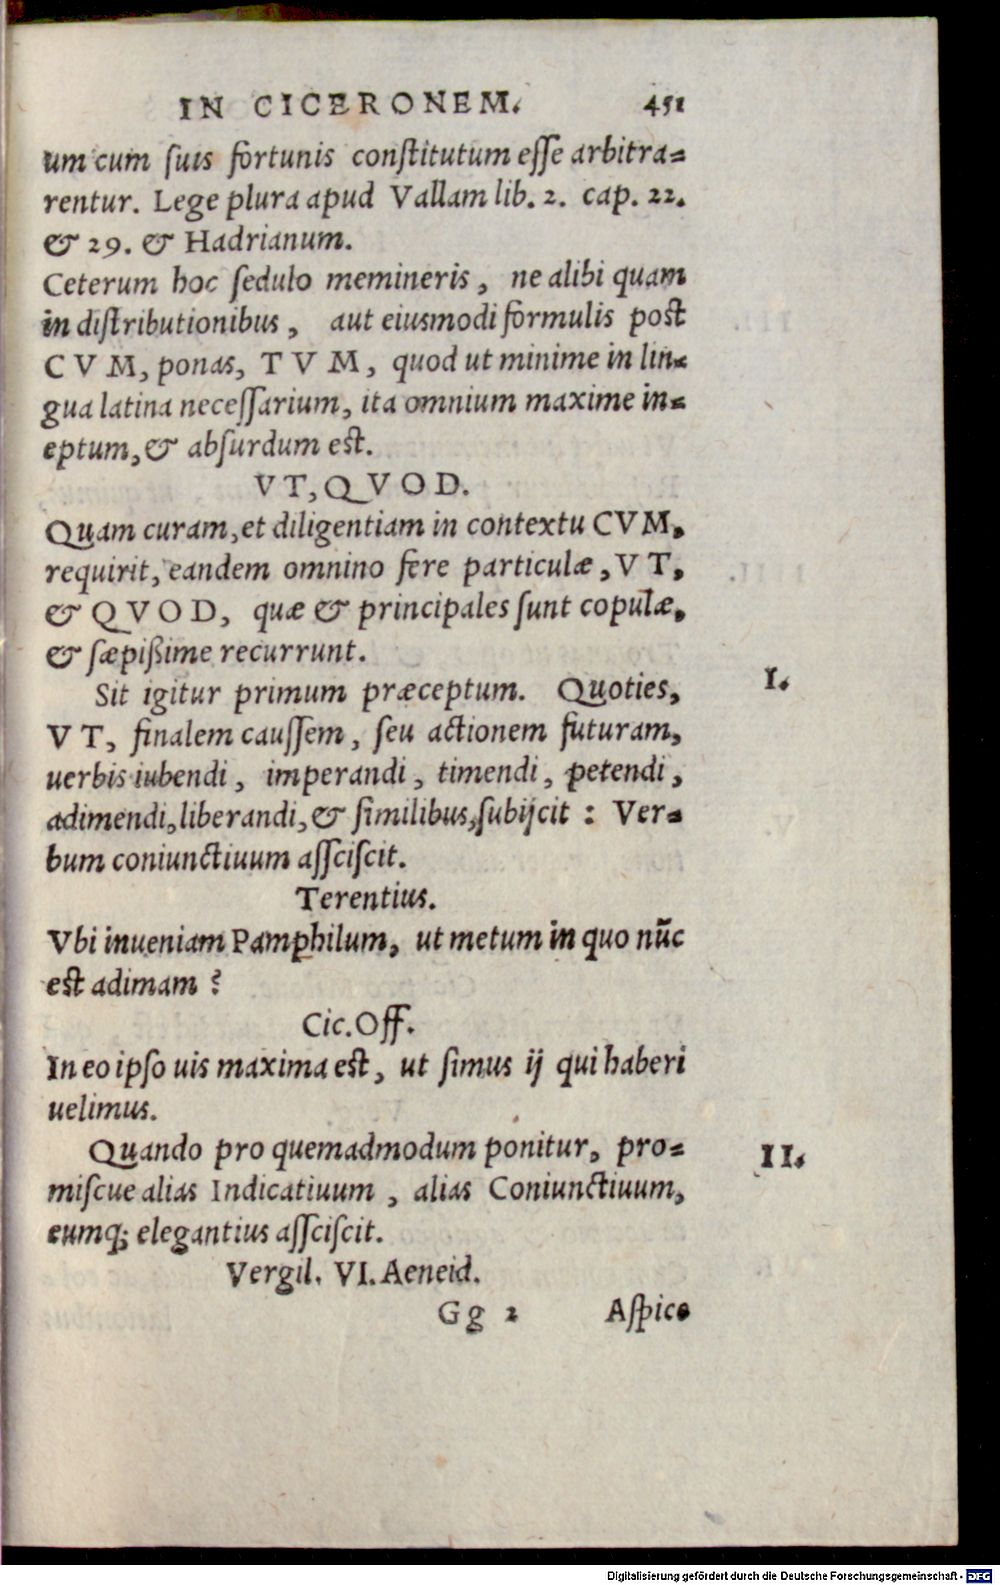 IN CICERONEM. 451
um cum suis fortunis constitutum esse arbitra=
rentur. Lege plura apud Vallam lib. 2. cap. 22.
& 29. & Hadrianum.
Ceterum hoc sedulo memineris, ne alibi quam
in distributionibus, aut eiusmodi formulis post
CVM, ponas, TVM, quod ut minime in lin=
gua latina necessarium, ita omnium maxime in=
eptum, & absurdum est.
VT, QVOD.
Quam curam, et diligentiam in contextu CVM,
requirit, eandem omnino fere particulæ, VT,
& QVOD, quæ & principales sunt copulæ,
& sæpißime recurrunt.
Sit igitur primum præceptum. Quoties, I.
VT, finalem caussem, seu actionem futuram,
uerbis iubendi, imperandi, timendi, petendi,
adimendi, liberandi, & similibus, subijcit : Ver=
bum coniunctiuum assciscit.
Terentius.
Vbi inueniam Pamphilum, ut metum in quo nũc
est adimam?
Cic. Off.
In eo ipso uis maxima est, ut simus ij qui haberi
uelimus.
Quando pro quemadmodum ponitur, pro= II.
miscue alias Indicatiuum, alias Coniunctiuum,
eumq; elegantius assciscit.
Vergil. VI. Aeneid.
Gg 2 Aspice
Digitalisierung gefördert durch die Deutsche Forschungsgemeinschaft - DFG